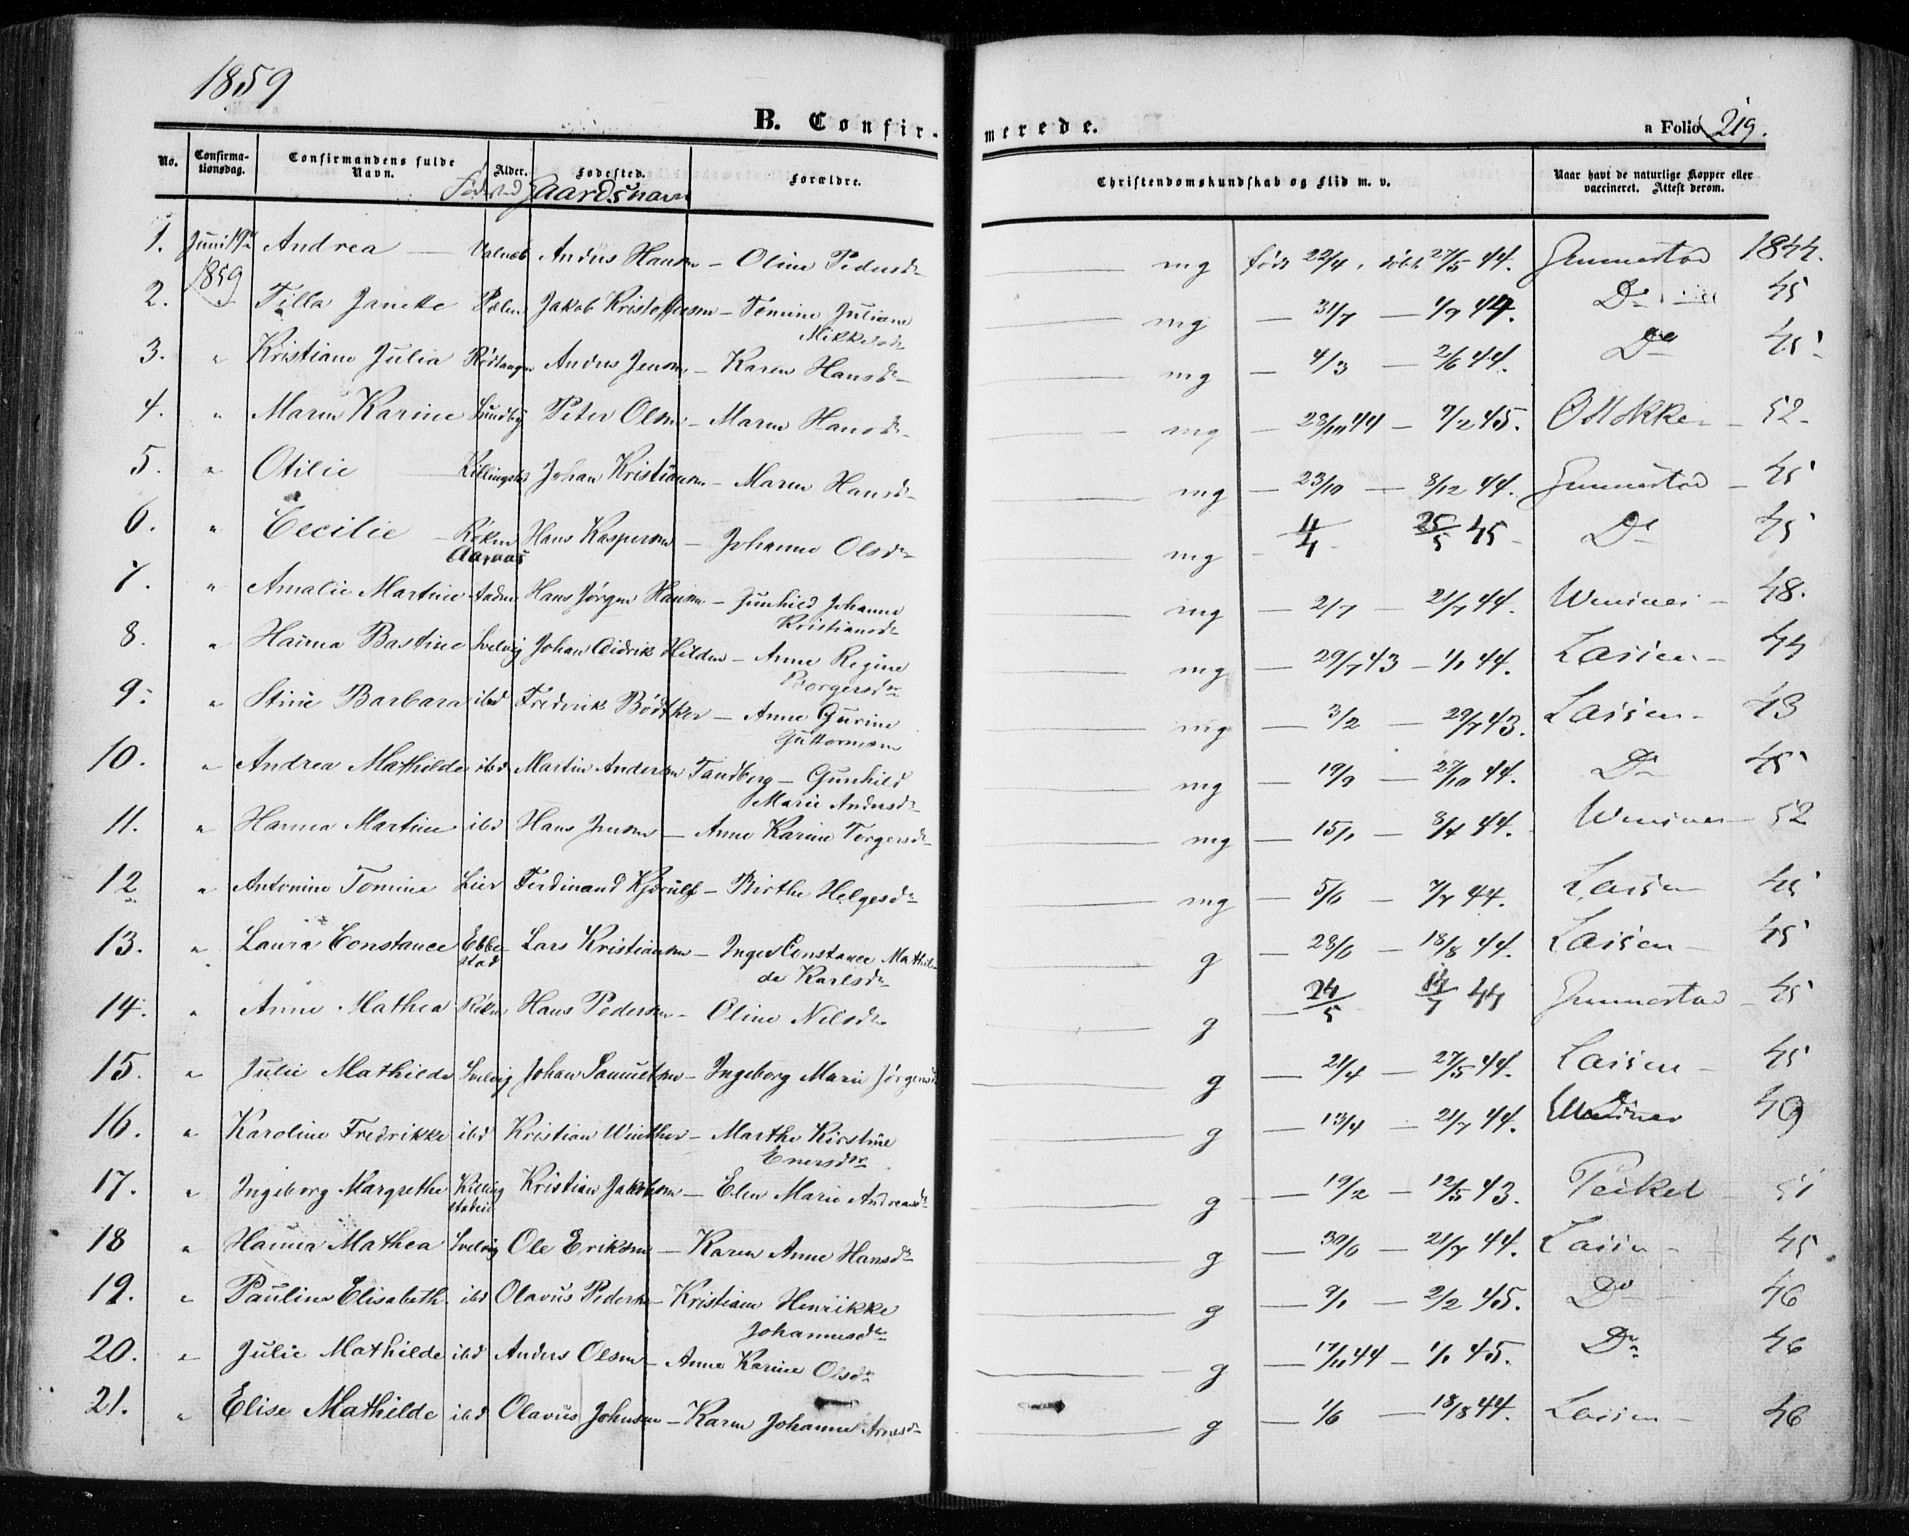 1859
B. Confir-
merede.
a Folio 219.
No.
Confirma-
tionsdag.
Confirmandens fulde
Navn.
Alder.
Fødested.
Forældre.
Christendomskundskab og Flid m. v.
Naar havt de naturlige Kopper eller
vaccineret. Attest derom.
Fødested Gaardsnavn
1. Juni 19de Andrea — Anders Hansen – Oline Pedersdr — mg født 22/4, døbt 27/5 44. Gunnestad 1844.
1859
2. Tilla Janette Jakob Kristoffersen – Tomine Juliane — mg — 31/7 — 1/9 44. Do 45
Mikkelsdr
3. " Kristiane Julia Rødtangen Anders Jensen – Karen Hansdr — mg — 4/3 — 2/6 44. Do 45
4. " Maren Karine Lundby Peter Olsen – Maren Hansdr — mg — 23/10 44 — 9/2 45. 52
5. " Otilie — Killingstad Johan Kristiansen – Maren Hansdr — mg — 23/10 — 8/12 44. Gunnestad – 45
6. " Cecilie – Røken Hans Kaspersen – Johanne Olsdr — mg 4/4 25/5 45 Do 45
Aaraas
7. " Amalie Martine Hans Jørgen Hansen – Gunhild Johanne — mg — 2/7 — 21/7 44. 48.
Kristiansdr
8. " Hanna Bastine Svelvig Johan Didrik Hilden – Anne Regine — mg — 29/7 43 — 1/1 44. Lassen – 44
Borgersdr
9. " Stine Barbara ibd Frederik Bødtker – Anne Gurine — mg — 3/2 — 29/7 43. Lassen – 43
Guttormsen
10. " Andrea Mathilde ibd Martin Andersen Tandberg – Gunhild — mg — 19/9 — 27/10 44. Do 45
Marie Andersdr
11. " Hanna Martine ibd Hans Jensen – Anne Karine Torgersdr — mg — 15/1 — 8/4 44. 52
12. " Antonine Tomine Lier Ferdinand Kjerulf – Birthe Helgesdr — mg — 5/6 7/7 44. Lassen 45
13. " Laura Constance Ebbe- Lars Kristiansen – Inger Constance Mathil- — g — 28/6 — 18/8 44. Lassen – 45
stad de Karlsdr
14. " Anne Mathea Røken Hans Pedersen – Oline Nilsdr — g — 24/5 14/7 44 Gunnestad – 45
15. " Julie Mathilde Svelvig Johan Samuelsen – Ingeborg Marie Jørgensdr — g — 21/4 — 27/5 44. Lassen – 45
16. " Karoline Fredrikke ibd Kristian Winther – Marthe Kirstine — g — 13/4 — 21/7 44. 49
Enersdr
17. " Ingeborg Margrethe Killing Kristian Jakobsen – Elen Marie Andreasdr — g — 19/2 — 12/5 43. 51
18 " Hanna Mathea Svelvig Ole Eriksen – Karen Anne Hansdr — g — 30/6 — 21/7 44. Lassen – 45
19. " Pauline Elisabeth ibd Olavus Pedersen – Kristiane Henrikke — g — 9/1 — 2/2 45. Do 46
Johannesdr
20. " Julie Mathilde ibd Anders Olsen – Anne Karine Olsdr — g — 17/11 44 — 1/1 45. Do 46
21. " Elise Mathilde ibd Olavus Johnsen – Karen Johanne Arnesdr — g — 1/6 — 18/8 44. Lassen – 46